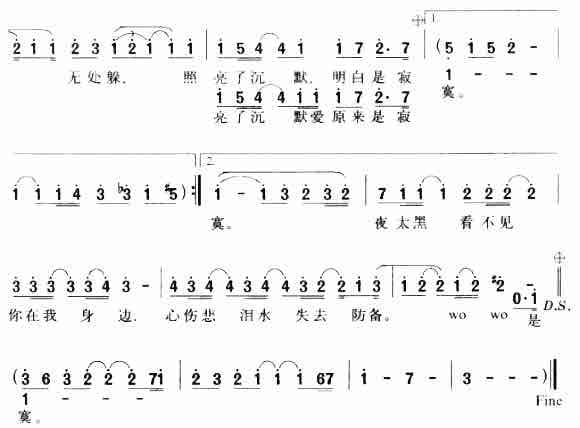 1.
2 1 1 2 3 1 2 1 1 1 | 1 5 4 4 1 1 7 2· 7 | (5 1 5 2 - -
无处躲。 照 亮了沉 默,明白是寂 1 - - -
1 5 4 4 1 1 1 7 2· 7 寞。
亮了沉 默爱原来是寂
2.
1 1 1 4 3 b3 1 #5) :‖ 1 - 1 3 2 3 2 | 7 1 1 1 2 2 2 2
寞。 夜太黑 看不见
3 3 3 3 3 4 3 - | 4 3 4 3 4 3 2 2 1 3 | 1 2 2 1 2 #2 -
0·1
你在我 身 边, 心伤悲 泪水 失去 防备。 wo wo 是 D.S.
(3 6 3 2 2 2 71 | 2 2 3 2 1 1 1 67 | 1 - 7 - | 3 - - -)‖
1 - - -
寞。 Fine